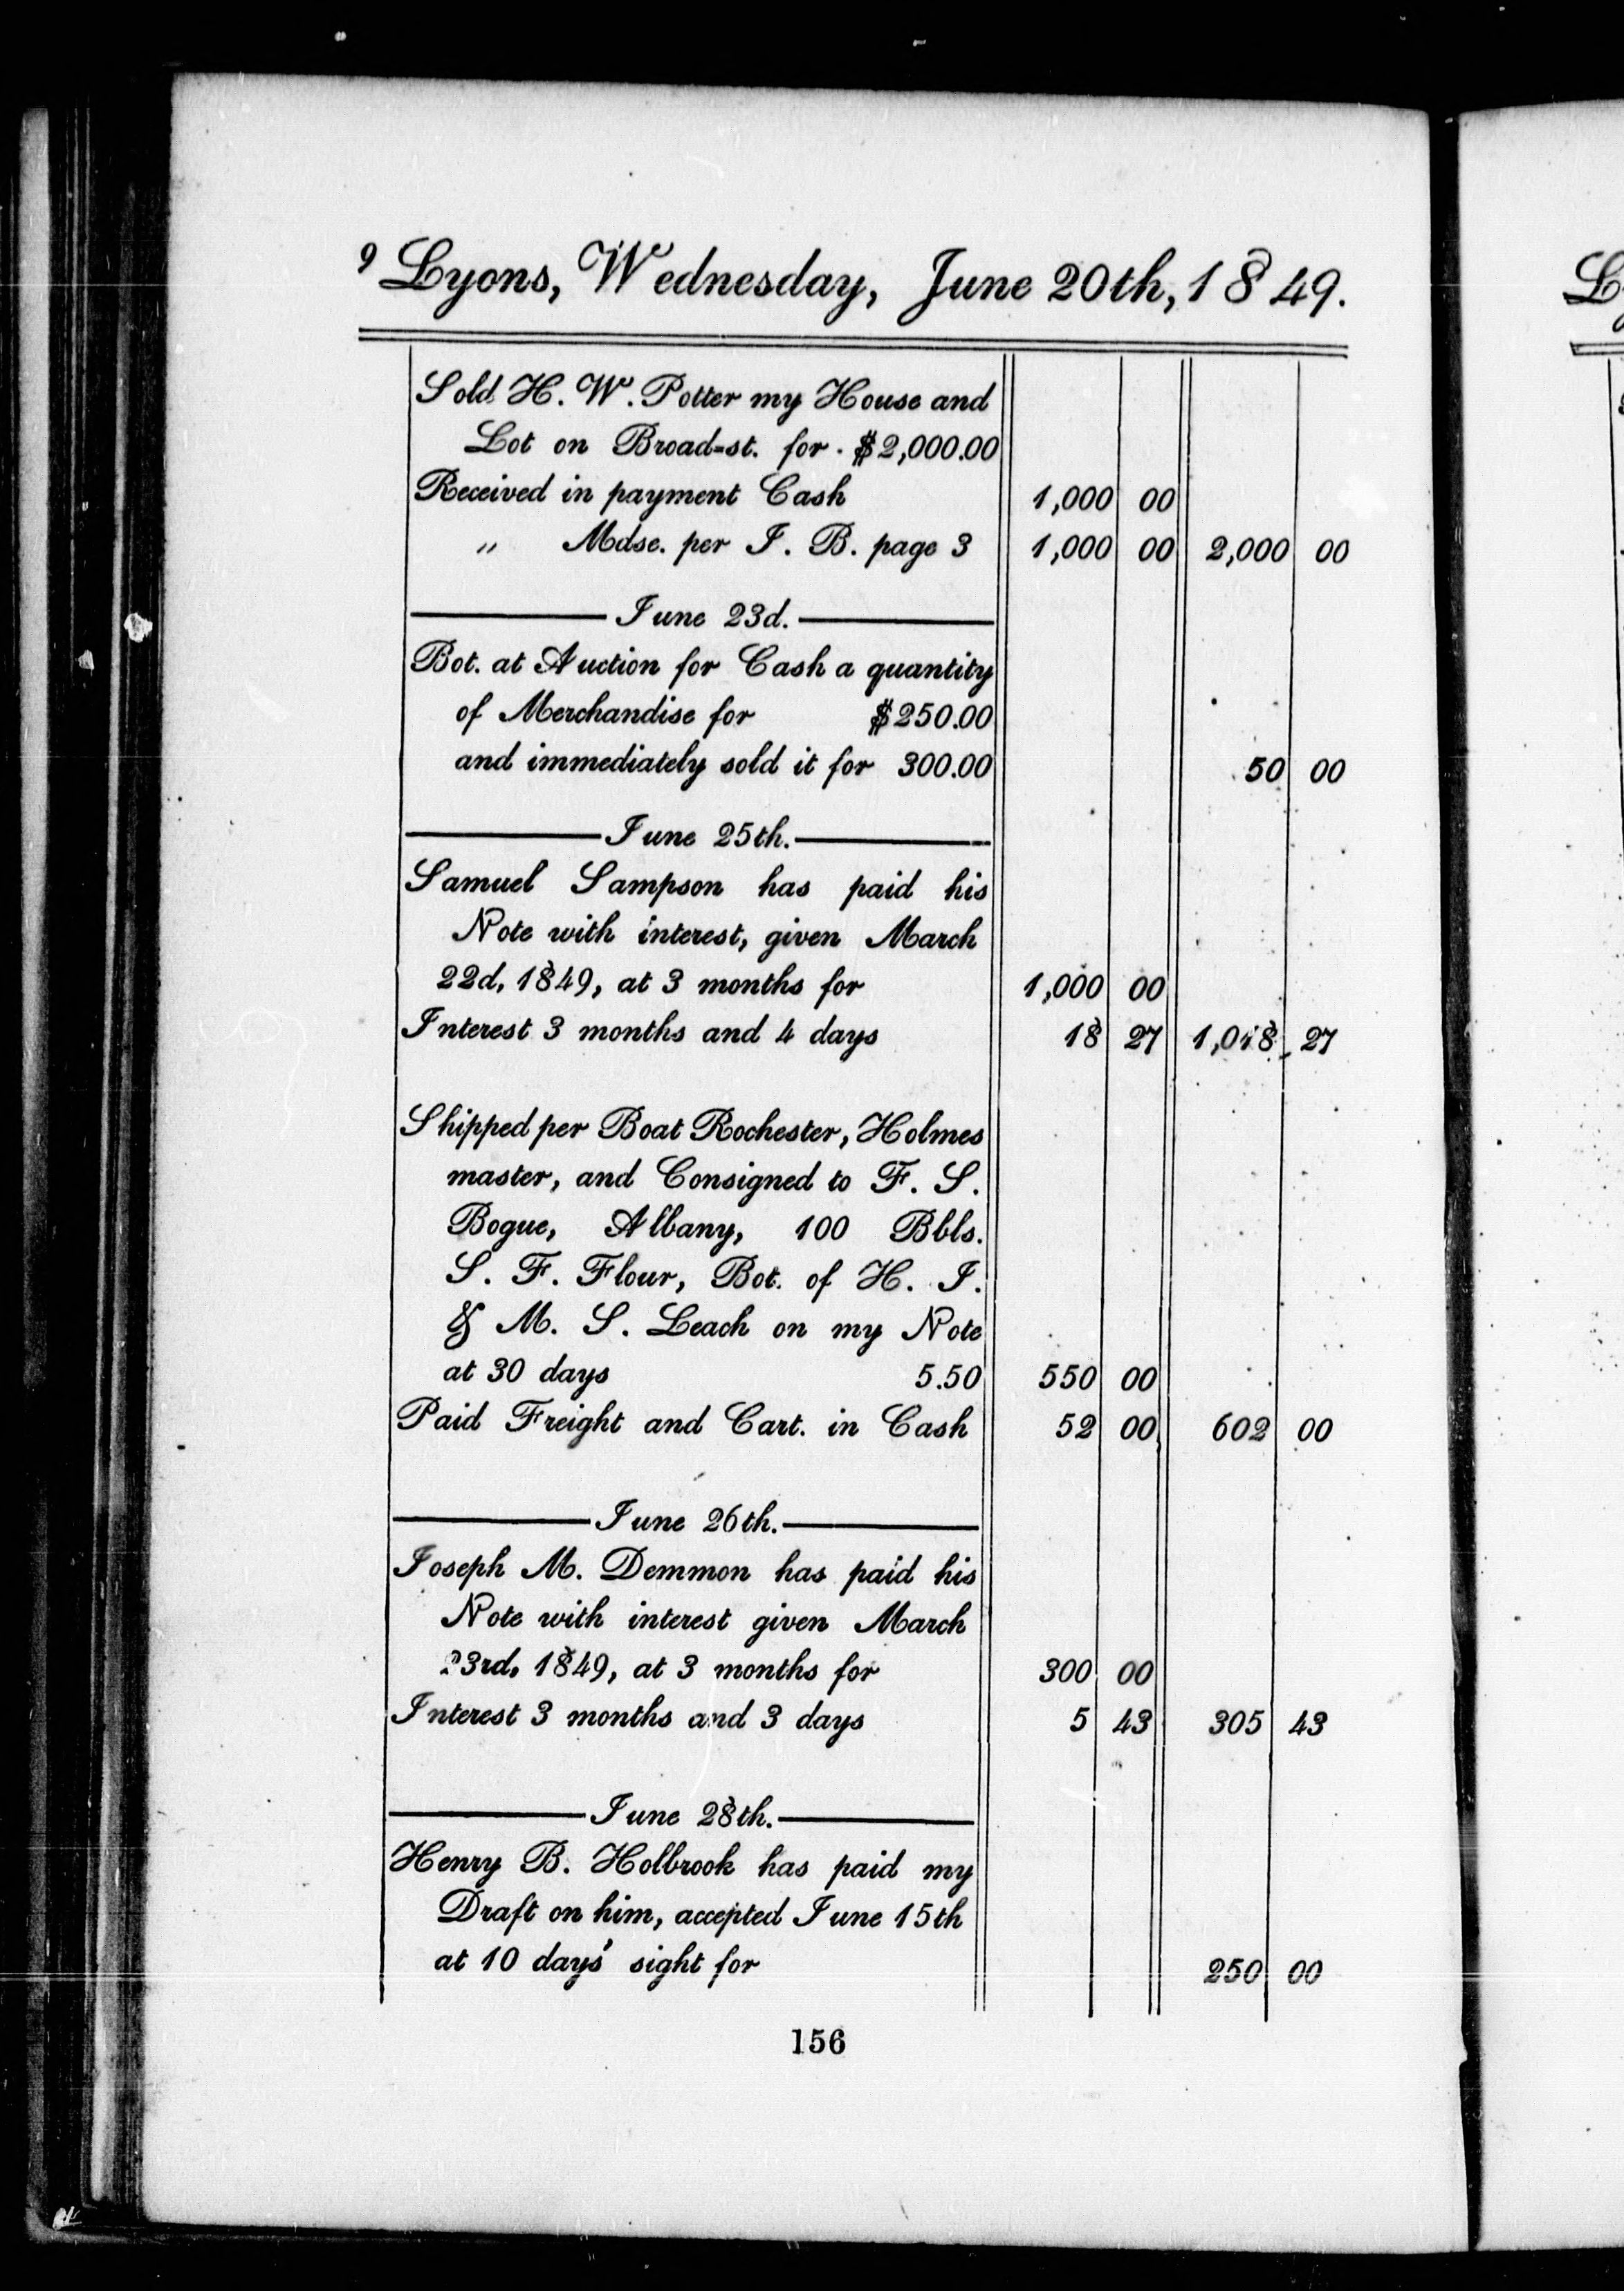 9 Lyons, Wednesday, June 20th, 1849.
Sold H. W. Potter my House and
Lot on Broad=st. for . $2,000.00
Received in payment Cash 1,000 00
" Mdse. per I. B. page 3 1,000 00 2,000 00
June 23d.
Bot. at Auction for Cash a quantity
of Merchandise for $250.00
and immediately sold it for 300.00 50 00
June 25th.
Samuel Sampson has paid his
Note with interest, given March
22d, 1849, at 3 months for 1,000 00
Interest 3 months and 4 days 18 27 1,018 27
Shipped per Boat Rochester, Holmes
master, and Consigned to F. S.
Bogue, Albany, 100 Bbls.
S. F. Flour, Bot. of H. J.
& M. S. Leach on my Note
at 30 days 5.50 550 00
Paid Freight and Cart. in Cash 52 00 602 00
June 26th.
Joseph M. Demmon has paid his
Note with interest given March
23rd, 1849, at 3 months for 300 00
Interest 3 months and 3 days 5 43 305 43
June 28th.
Henry B. Holbrook has paid my
Draft on him, accepted June 15th
at 10 days' sight for 250 00
156